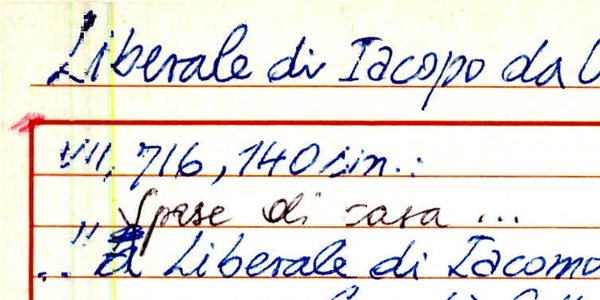 Liberale di Iacopo da
VII, 716, 140 sin.:
Spese di casa ...
"
.. a Liberale di Iacomo